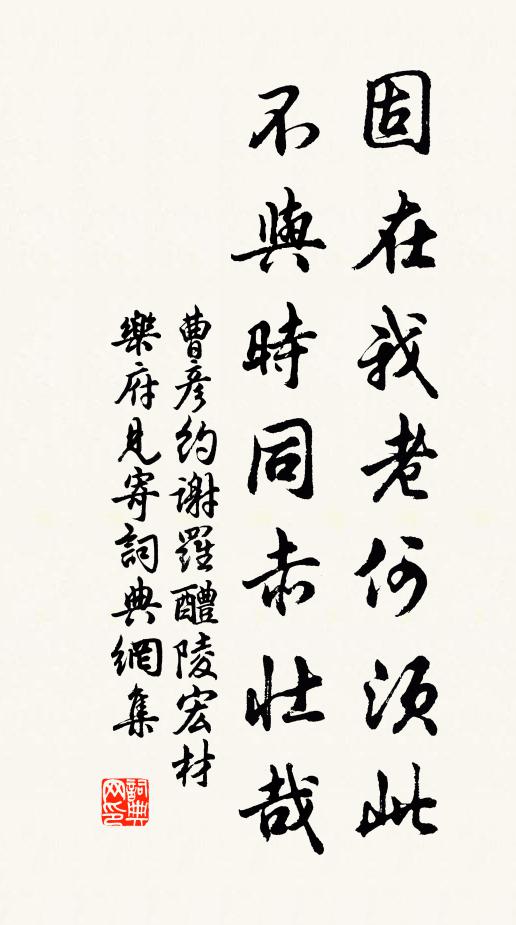 固在我老何須此
不與時同亦壯哉
曹彥約謝羅醴陵宏材
樂府見寄詞典網集
詞典网印